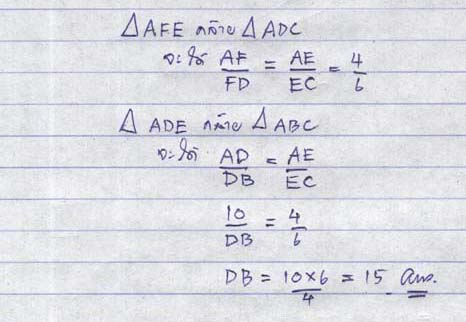 △AFE คล้าย △ADC
จะได้ AF/FD = AE/EC = 4/6
△ADE คล้าย △ABC
จะได้ AD/DB = AE/EC
10/DB = 4/6
DB = 10×6/4 = 15 Ans.